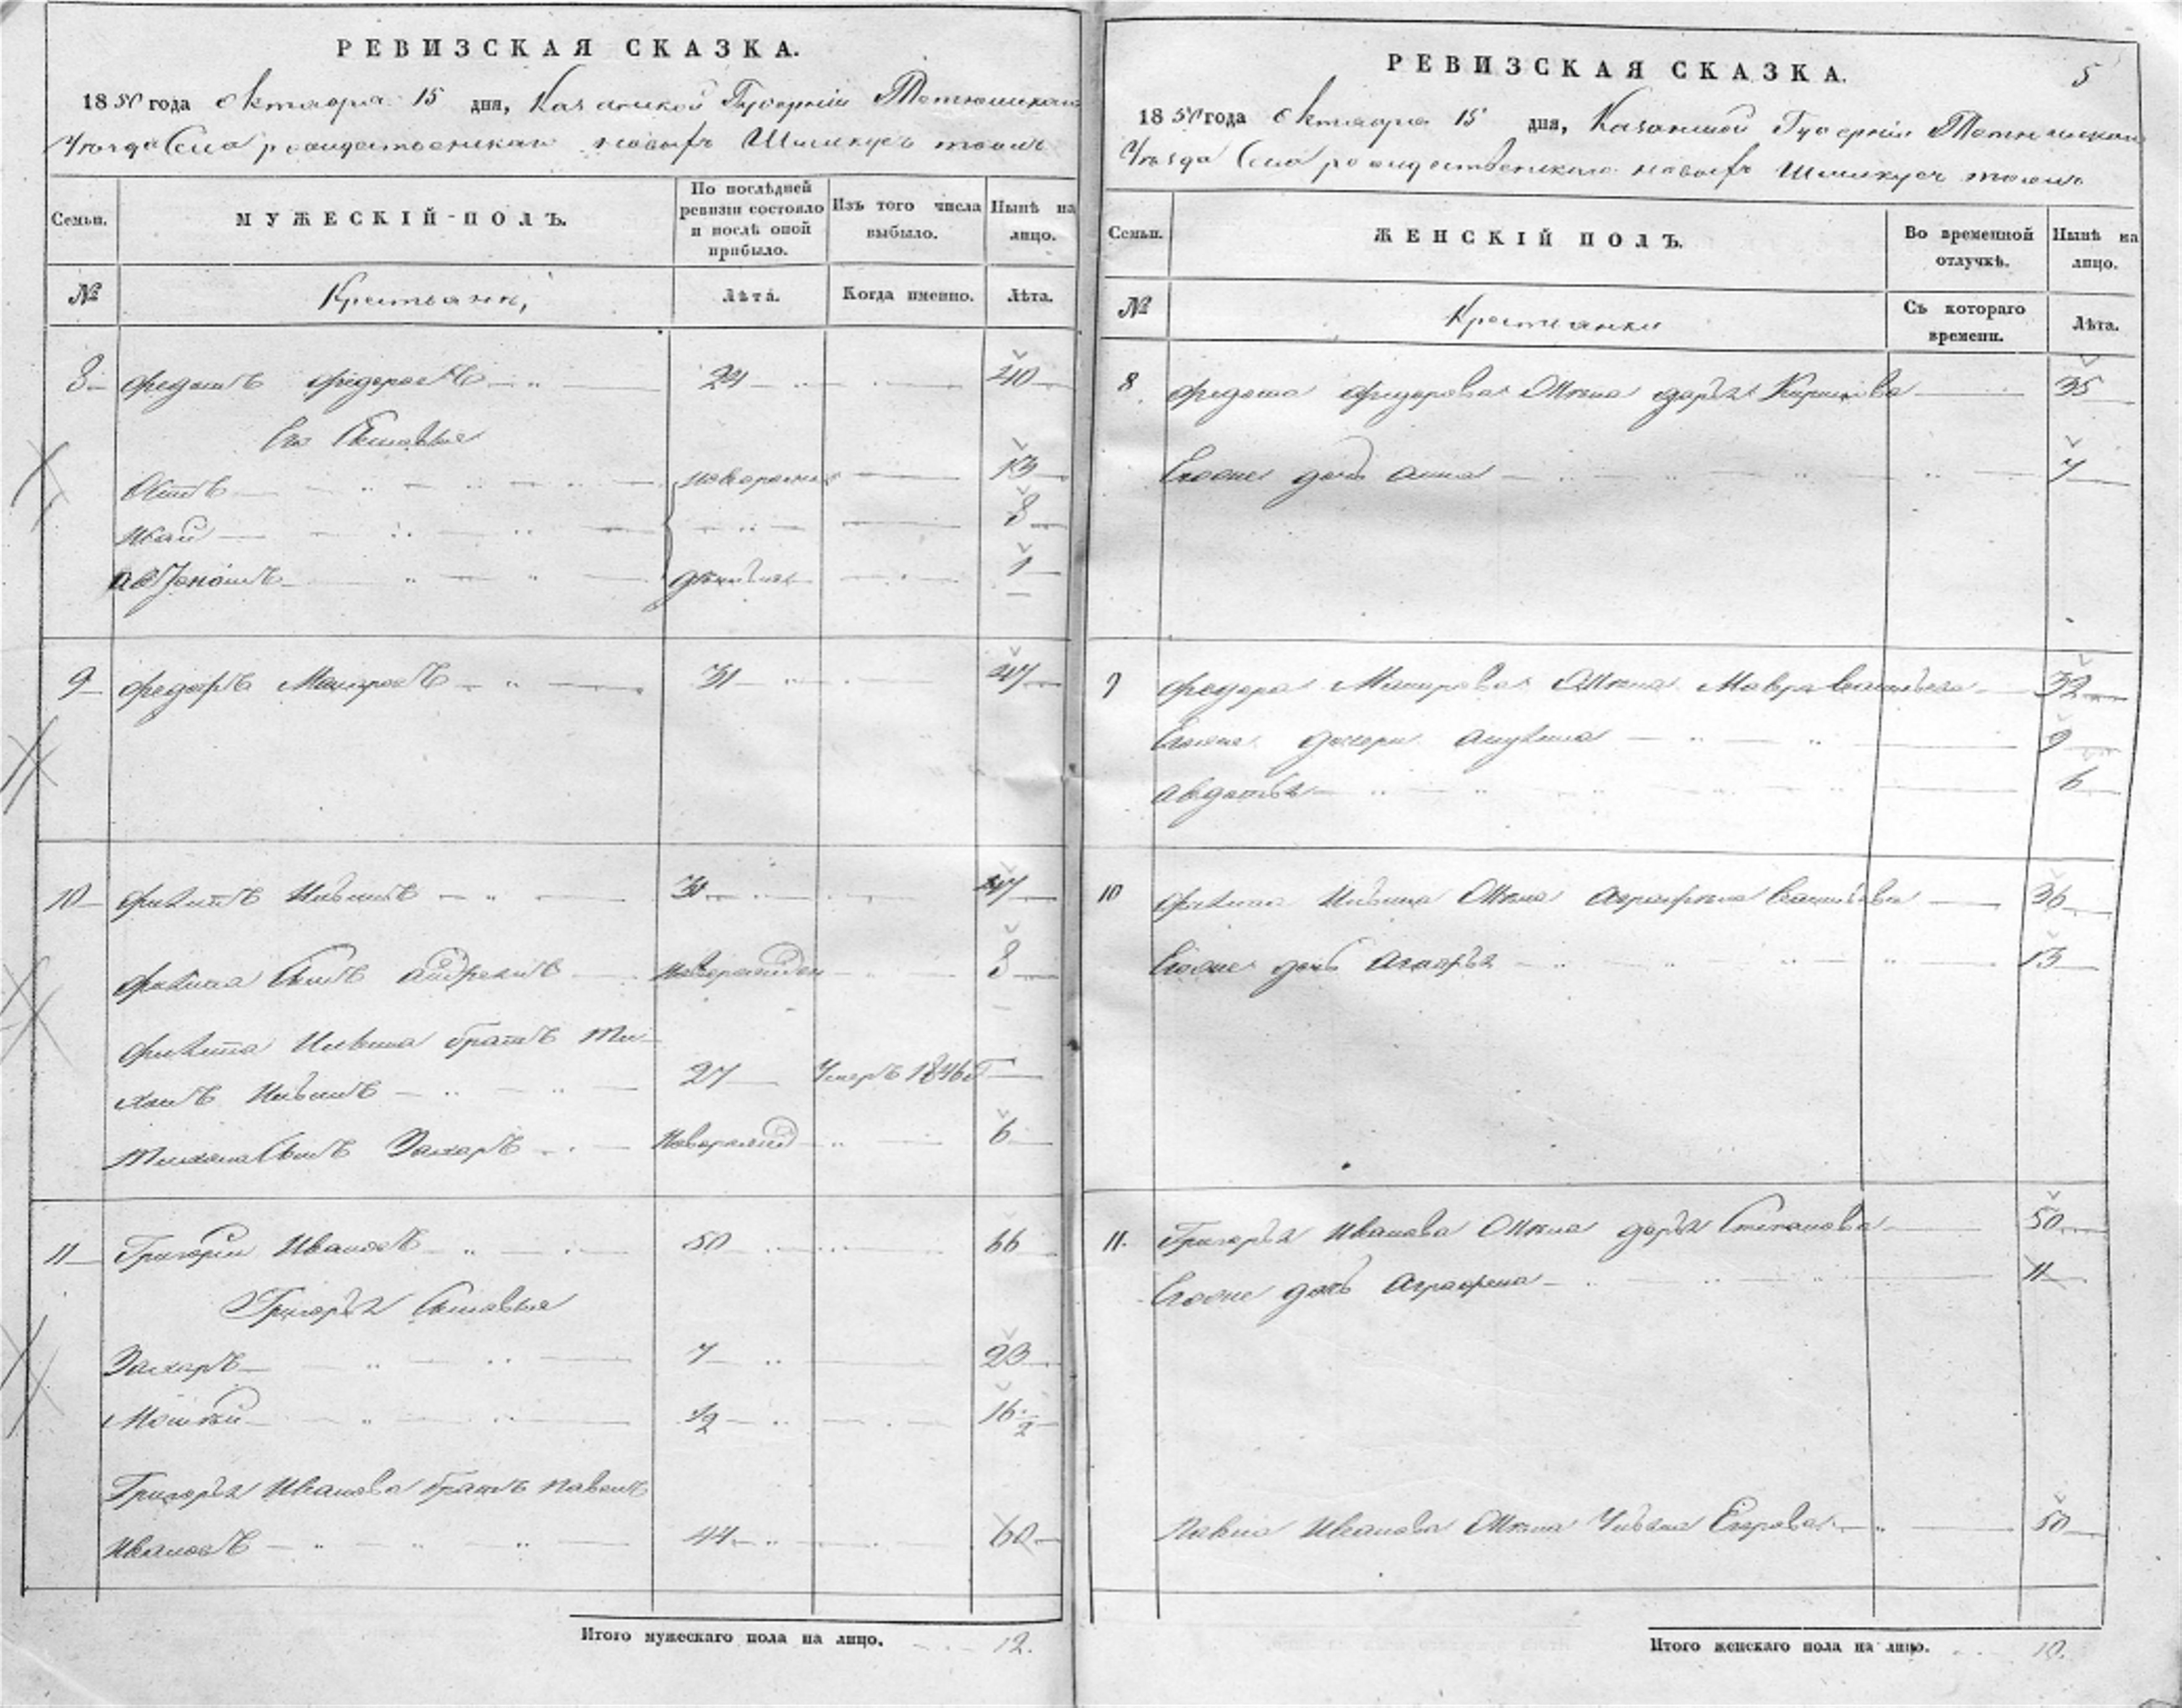 РЕВИЗСКАЯ СКАЗКА.
1850 года октября 15 дня, Казанской Губернии Тетюшскаго
Уезда Села рождественскаго
Семьи. МУЖЕСКІЙ ПОЛЪ. По послѣдней ревизіи состояло и послѣ оной прибыло. Изъ того числа выбыло. Нынѣ на лицо.
№ Крестьяне, Лѣта. Когда именно. Лѣта.
8 Федотъ Федоровъ 24 40
Его Сыновья
Осипъ новорожден 13
Иван 8
1
9 Федоръ Макаровъ 31 47
10 Филипъ 31 47
Филипа Сынъ Андреянъ Новорожден 8
Филипа братъ Ми-
хаилъ 27 Умеръ 1846 г
Михаила Сынъ Захаръ Новорожд 6
11 Григорій Ивановъ 50 66
Григорья Сыновья
Захаръ 7 23
Моисей 1/2 16 1/2
Григорья Иванова братъ Павелъ
Ивановъ 44 60
Итого мужескаго пола на лицо. 12.
РЕВИЗСКАЯ СКАЗКА. 5
1850 года октября 15 дня, Казанской Губерніи Тетюшскаго
Уезда Села рождественскаго
Семьи. ЖЕНСКІЙ ПОЛЪ. Во временной отлучкѣ. Нынѣ на лицо.
№ Крестьянки Съ котораго времени. Лѣта.
8 Федота Федорова Жена дарья 35
Егоже дочь анна 7
9 Федора Макарова Жена Мавра Васильева 32
Егоже дочери 9
авдотья 6
10 Филипа Жена аграфена Васильева 36
Егоже дочь 13
11. Григорья Иванова Жена дарья Степанова 50
Егоже дочь аграфена 11
Павла Иванова Жена Ульяна Егорова 50
Итого женскаго пола на лицо. 10.